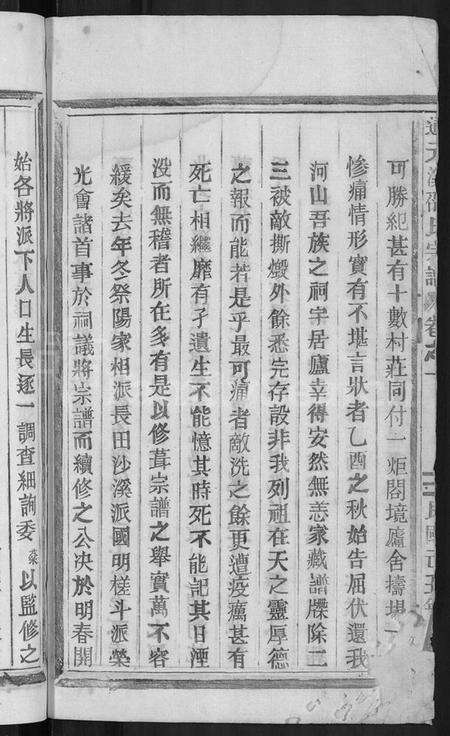 邵氏宗譜 卷之一
可勝紀甚有十數村莊同付一炬閤境廬舍擣塌
慘痛情形實有不堪言狀者乙酉之秋始告屈伏還我
河山吾族之祠宇居廬幸得安然無恙家藏譜牒除二
三被敵撕燬外餘悉完存設非我列祖在天之靈厚德
之報而能若是乎最可痛者敵洗之餘更遭疫癘甚有
死亡相繼靡有孑遺生不能憶其時死不能記其日湮
沒而無稽者所在多有是以修葺宗譜之舉實萬不容
緩矣去年冬祭陽家相派長田沙溪派國明槎斗派榮
光會諸首事於祠議將宗譜而續修之公决於明春開
始各將派下人口生長逐一調查細詢委燊以監修之